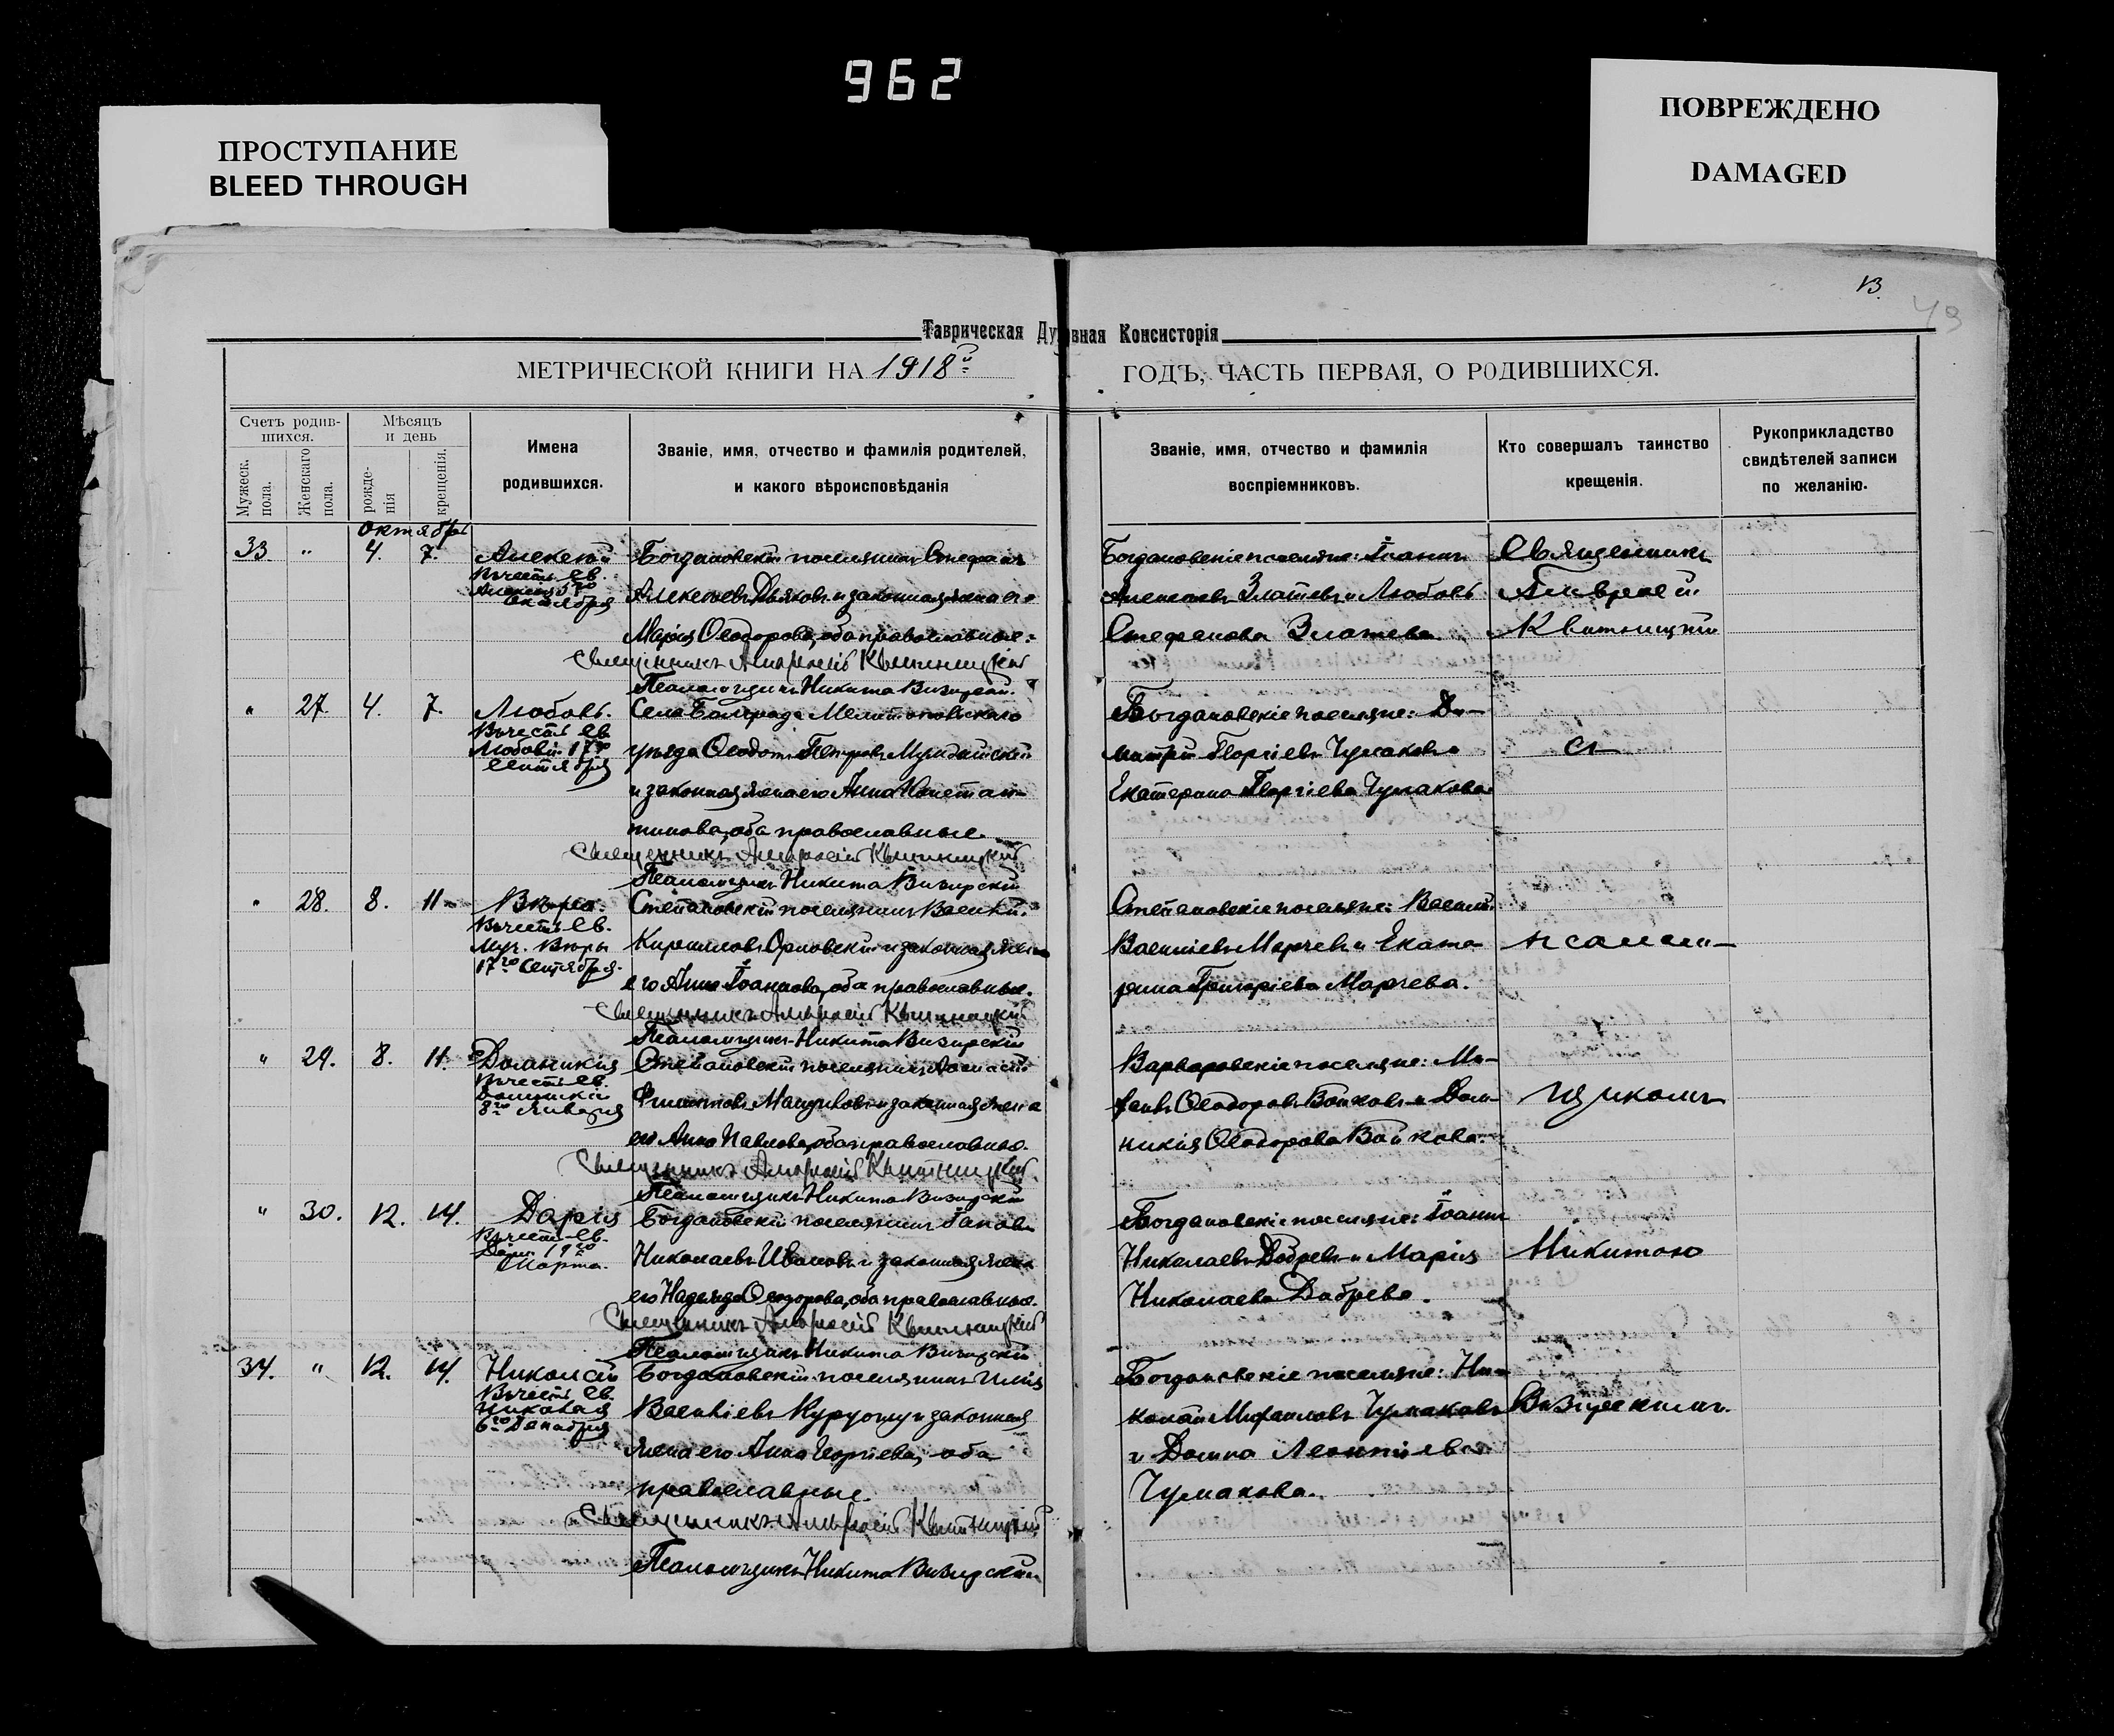 962
ПРОСТУПАНИЕ
BLEED THROUGH
ПОВРЕЖДЕНО
DAMAGED
13
49
Таврическая Духовная Консисторія
МЕТРИЧЕСКОЙ КНИГИ НА 1918й
ГОДЪ, ЧАСТЬ ПЕРВАЯ, О РОДИВШИХСЯ.
Счетъ родив-
шихся.
Мужеск. пола.
Женскаго пола.
Мѣсяцъ
и день
рожде-
нія
крещенія.
Имена
родившихся.
Званіе, имя, отчество и фамилія родителей,
и какого вѣроисповѣданія
Званіе, имя, отчество и фамилія
воспріемниковъ.
Кто совершалъ таинство
крещенія.
Рукоприкладство
свидѣтелей записи
по желанію.
Октябрь
33 " 4. 7. Алексѣй
Въ честь св.
Алексія 5го
Октября
Богдановскій поселянинъ Стефанъ
Алексѣевъ Дьяковъ и законная жена его
Марія Ѳеодорова, оба православные.
Священникъ Амвросій Квитницкій
Псаломщикъ Никита Визирскій.
Богдановскіе поселяне: Іоаннъ
Алексѣевъ Златевъ и Любовь
Стефанова Златева.
Священникъ
Амвросій
Квитницкій
" 27. 4. 7. Любовь.
Въ честь св.
Любови 17го
Сентября
Села Болграда Мелитопольскаго
уѣзда Ѳеодотъ Петровъ
и законная жена его Анна Констан-
тинова, оба православные.
Священникъ Амвросій Квитницкій
Псаломщикъ Никита Визирскій
Богдановскіе поселяне: Ди-
митрій Георгіевъ Чумаковъ и
Екатерина Георгіева Чумакова.
съ
" 28. 8. 11. Вѣра.
Въ честь св.
Муч. Вѣры
17го Сентября.
Степановскій поселянинъ Василій
Кирилловъ Орловскій и законная жена
его Анна Іоаннова, оба православные.
Священникъ Амвросій Квитницкій
Псаломщикъ Никита Визирскій
Степановскіе поселяне: Василій
Васильевъ Марчевъ и Екате-
рина Григоріева Марчева.
псалом-
" 29. 8. 11. Домникія
Въ честь св.
Домникіи
8го Января
Степановскій поселянинъ
Филипповъ и законная жена
его Анна Павлова, оба православные.
Священникъ Амвросій Квитницкій
Псаломщикъ Никита Визирскій
Варваровскіе поселяне: Ми-
Ѳеодоровъ Войковъ и Дом-
никія Ѳеодорова Войкова.
щикомъ
" 30. 12. 14. Дарія
Въ честь св.
Даріи 19го
Марта.
Богдановскій поселянинъ Іаковъ
Николаевъ Ивановъ и законная жена
его Надежда Ѳеодорова, оба православные.
Священникъ Амвросій Квитницкій
Псаломщикъ Никита Визирскій
Богдановскіе поселяне: Іоаннъ
Николаевъ Добревъ и Марія
Николаева Добрева.
Никитою
34. " 12. 14. Николай
Въ честь св.
Николая
6го Декабря
Богдановскій поселянинъ Илія
Васильевъ и законная
жена его Анна Георгіева, оба
православные.
Священникъ Амвросій Квитницкій
Псаломщикъ Никита Визирскій
Богдановскіе поселяне: Ни-
колай Михаиловъ Чумаковъ
и Домна Леонтіева
Чумакова.
Визирскимъ.